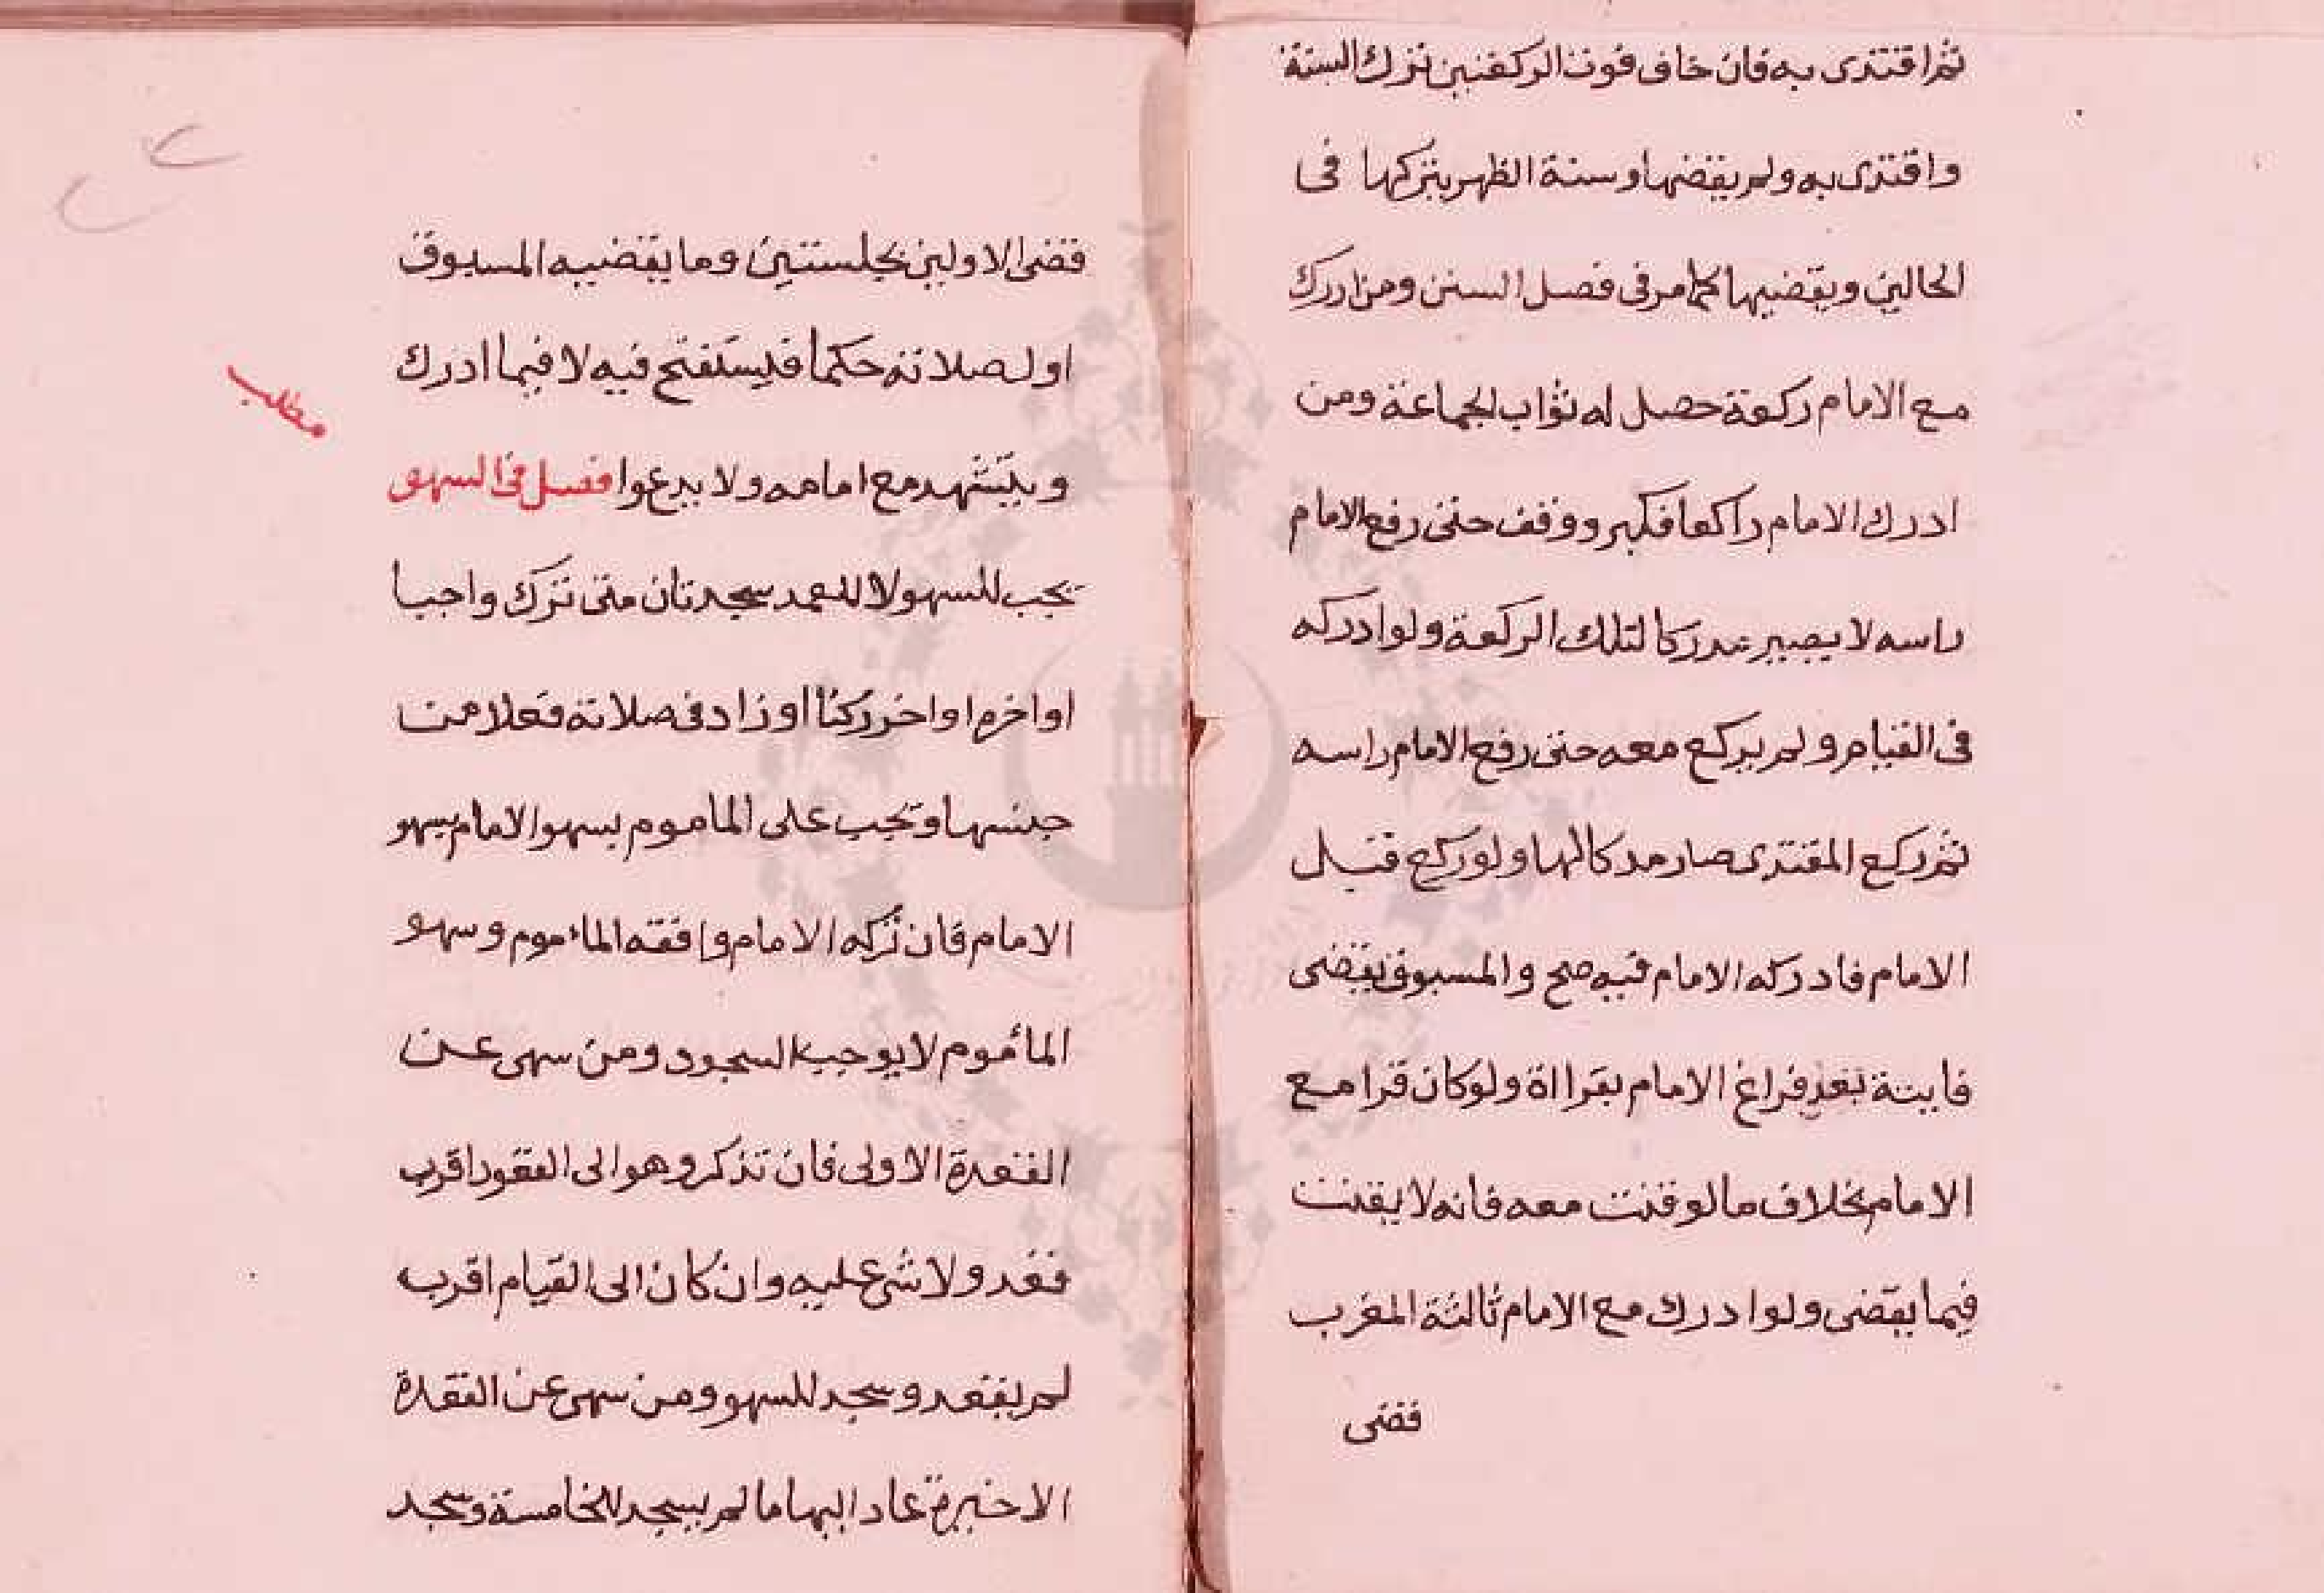 ثم اقتدى به فان خاف فوت الركعتين ترك السنة
واقتدى به ولم يقضها وسنة الظهر يتركها فى
الحالين ويقضيها كما مر فى فصل السنن ومن ادرك
مع الامام ركعة حصل له ثواب الجماعة ومن
ادرك الامام راكعا فكبر ووقف حتى رفع الامام
راسه لا يصير مدركا لتلك الركعة ولو ادركه
فى القيام ولم يركع معه حتى رفع الامام راسه
ثم ركع المقتدى صار مدركا لها ولو ركع قبل
الامام فادركه الامام فيه صح والمسبوق يقضى
فايتة بعد فراغ الامام بقرااة ولو كان قرا مع
الامام بخلاف ما لو قنت معه فانه لا يقنت
فيما يقضى ولو ادرك مع الامام ثالثة المغرب
فقضى
فقضى الاولين بجلستين وما يقضيه المسبوق
اول صلاته حكما فليستفتح فيه لا فيما ادرك
مطلب
ويتشهد مع امامه ولا يدعوا فصل فى السهو
يجب للسهو لا للعمد سجدتان متى ترك واجبا
او اخره او اخر ركنا او زاد فى صلاته فعلا من
جنسها وتجب على الماموم بسهو الامام بسهو
الامام فان تركه الامام وافقه الماءموم وسهو
المأموم لا يوجب السجود ومن سهى عن
القعدة الاولى فان تذكر وهو الى القعود اقرب
فقعد ولا شئ عليه وان كان الى القيام اقرب
لم يقعد وسجد للسهو ومن سهى عن القعدة
الاخيرة عاد اليها ما لم يسجد للخامسة وسجد